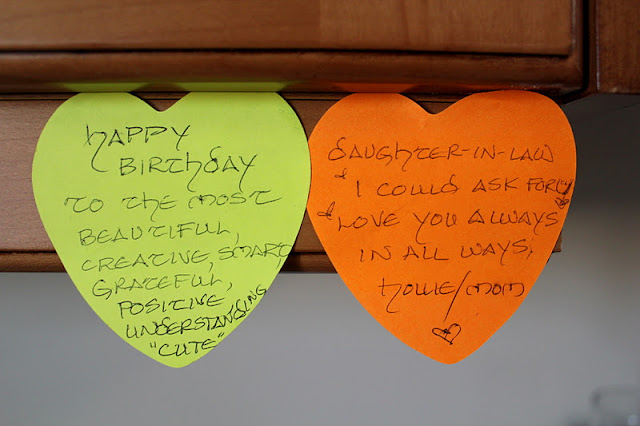 HAPPY
BIRTHDAY
TO THE MOST
BEAUTIFUL,
CREATIVE, SMART,
GRATEFUL,
POSITIVE,
UNDERSTANDING
"CUTE"
DAUGHTER-IN-LAW
I COULD ASK FOR!
LOVE YOU ALWAYS
IN ALL WAYS,
/MOM